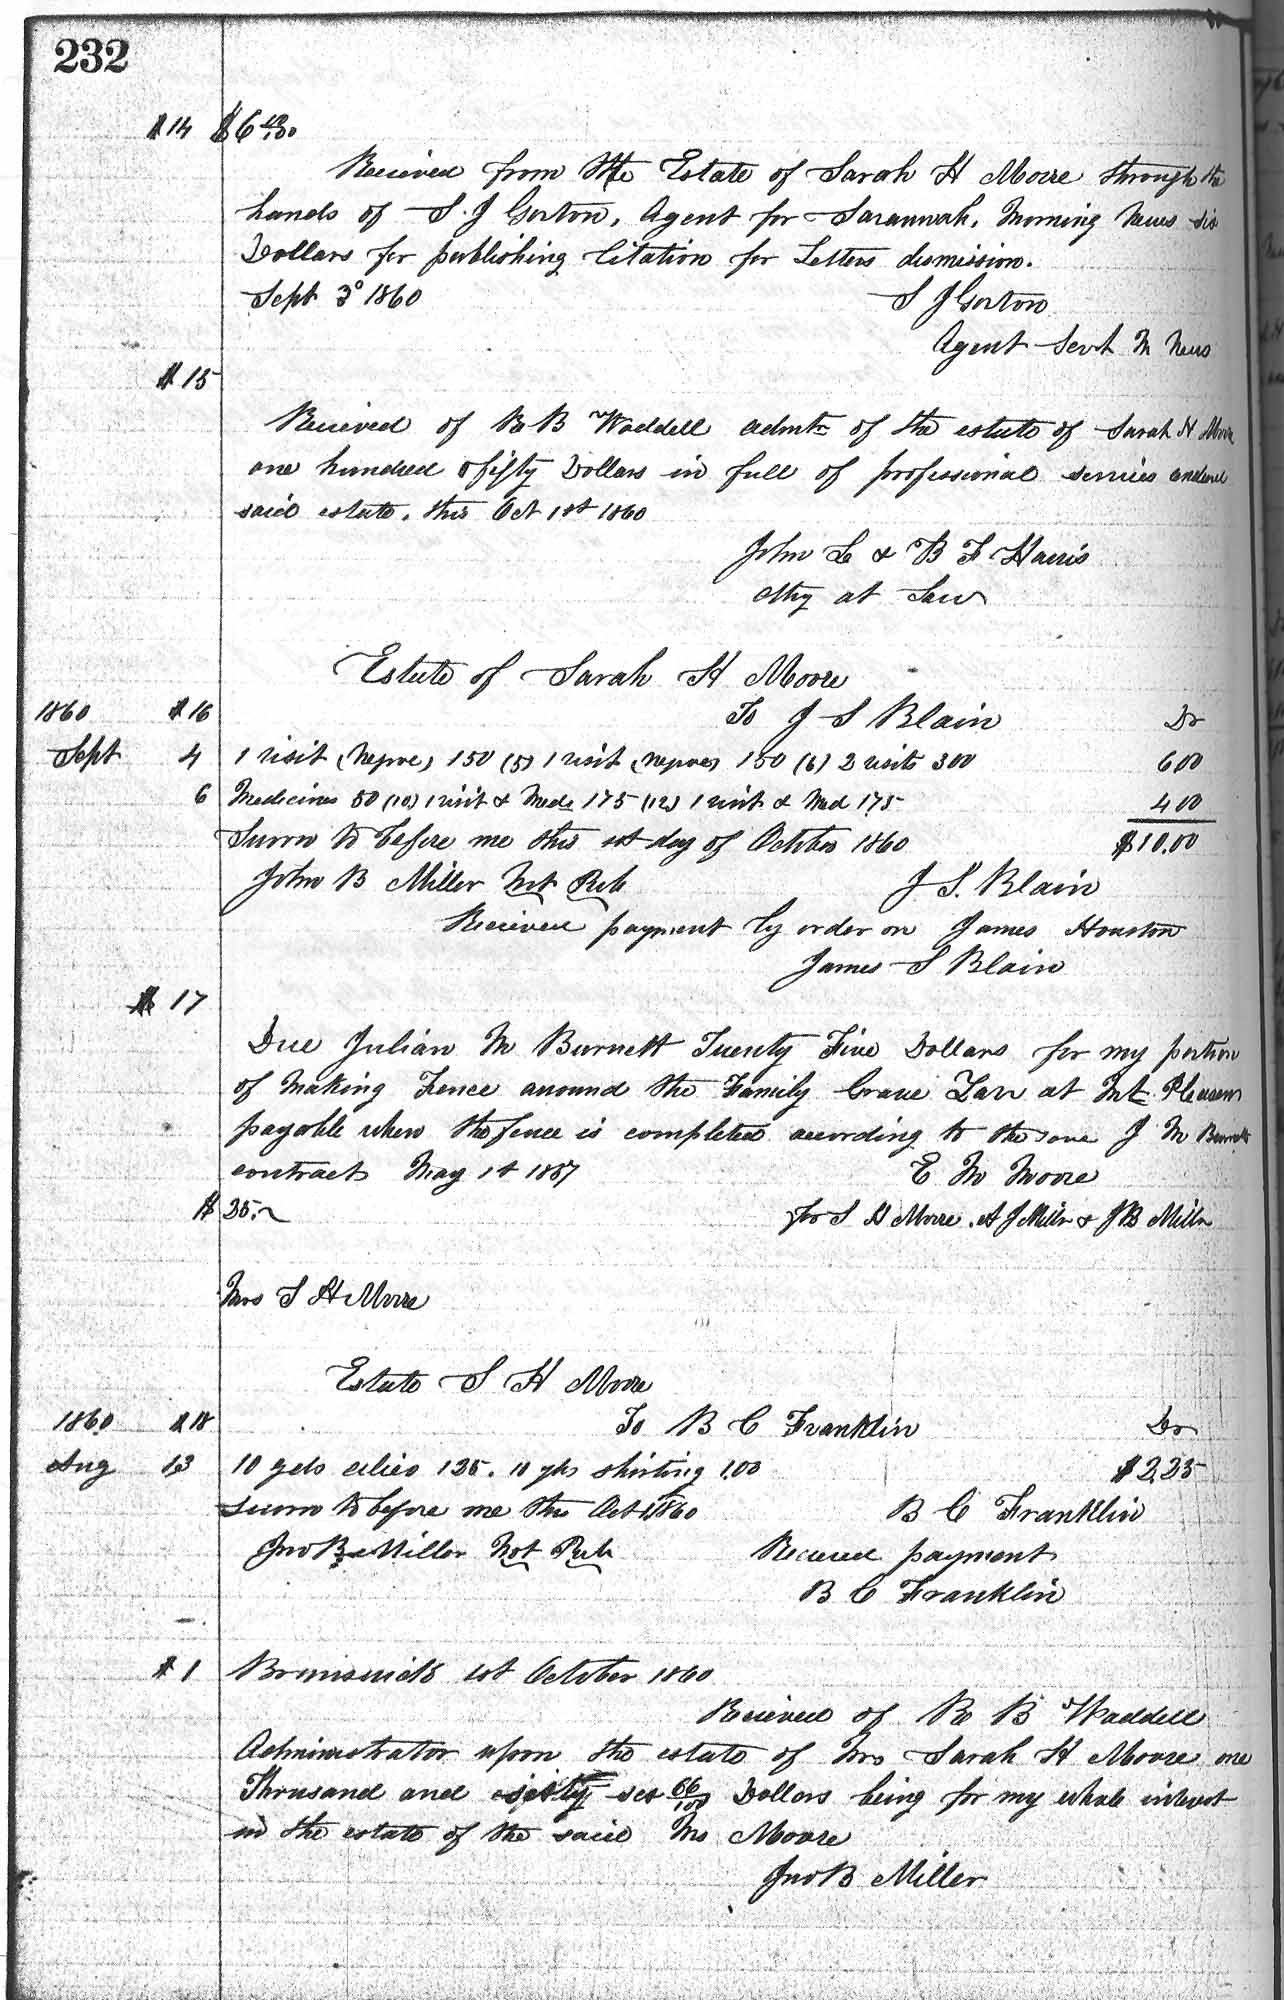 232
# 14 $6
Recieved from the Estate of Sarah H Moore through the
hands of S. J Gorton, Agent for Savannah, Morning News six
Dollars for publishing Citation for Letters dismission.
Sept 3° 1860 S J Gorton
Agent Savh M News
# 15
Recieved of R B Waddell admtr of the estate of Sarah H Moore
one hundred & fifty Dollars in full of professional servics
said estate, this Oct 1st 1860
John L & B F Harris
Atty at Law
Estate of Sarah H Moore
1860 # 16 To J S Blain Dr
Sept 4 1 visit (Negroe) 150 (5) 1 visit (Negroe) 150 (6) 2 visits 300 600
6 Medicines 50 (10) 1 visit & Meds 175 (12) 1 visit & Med 175 400
Sworn to before me this 1st day of October 1860 $10.00
John B Miller Not Pub J. S. Blain
Recieved payment by order on James Houston
James S Blain
# 17
Due Julian M Burnett Twenty Five Dollars for my portion
of making Fence around the Family Grave Yar at Mt Pleasen
payable when the fence is completed according to the J M Burnett
contract May 1st 1857 E M Moore
$ 25. for S H Moore. A J Miller & J B Miller
Mrs S H Moore
Estate S H Moore
1860 # 18 To B C Franklin Dr
Aug 13 10 yds calico 125. 10 yds shirting 1.00 $2.25
Sworn to before me this Oct 1, 1860 B C Franklin
Jno B Miller Not Pub Recieved payment
B C Franklin
# 1 Brunswick 1st October 1860
Recieved of R B Waddell
Administrator upon the estate of Mrs Sarah H Moore one
Thousand and sixty six 66/100 Dollars being for my whole interest
in the estate of the said Mrs Moore
Jno B Miller